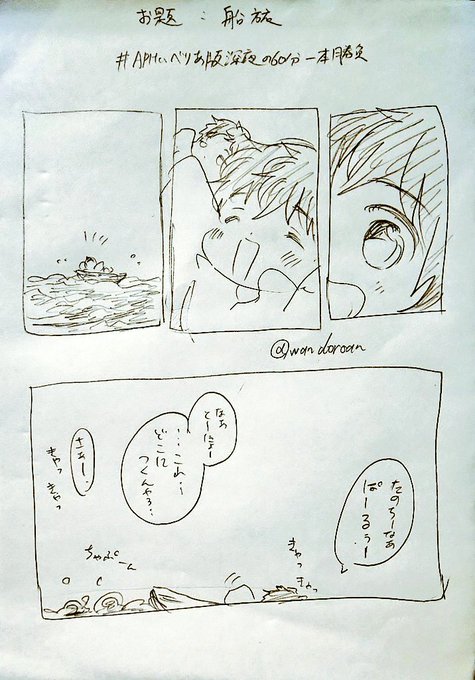 お題：船旅
#APHいべりあ版深夜の60分一本勝負
@wandoroan
たのちーなあ
ぱーるぅー
きゃっ
きゃっ
なあ
とーにょー
…これ…
どこに
つくんやろ…
さあー。
きゃっ
きゃっ
ちゃぷーん